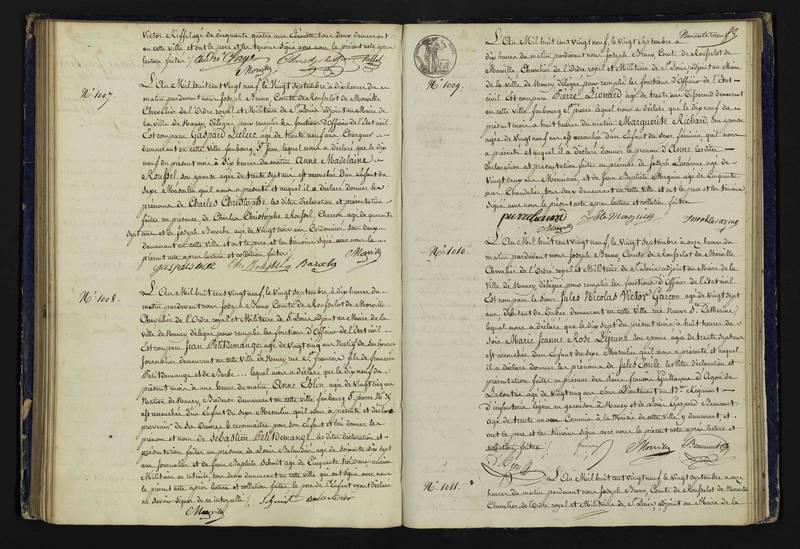 Victor Riffel agé de cinquante quatre ans tous deux demeurant
en cette ville et ont le père et les témoins signé avec nous le présent acte après
lecture faite
Morville
N° 1007.
L'An Mil huit cent vingt neuf, le Vingt Septembre à dix heures du
matin pardevant nous Joseph Bruno Comte de Rousselot de Morville
Chevalier de l'Ordre royal et Militaire de St Louis adjoint au Maire de la
ville de Nancy, délégué pour remplir les fonctions d'officier de l'état civil
Est comparu Gaspard Leclerc agé de trente neuf ans
demeurant en cette Ville faubourg St Jean lequel nous a déclaré que le dix
neuf du présent mois à dix heures du matin Anne Madelaine
Roussel, son épouse agée de trente sept ans est accouchée d'un Enfant du
Sexe Masculin qu'il nous a présenté et auquel il a déclaré donner les
prénoms de Charles Christophe les dites déclaration et présentation
faites en présence de Charles Christophe Roussel, Charron agé de quarante
sept ans et de Joseph agé de vingt trois ans Cordonnier tous deux
demeurant en cette ville et ont le père et les témoins signé avec nous le
présent acte après lecture et collation faites
Morville
N° 1008.
L'An Mil huit cent vingt neuf, le Vingt Septembre à dix heures du
matin pardevant nous Joseph Bruno Comte de Rousselot de Morville
Chevalier de l'Ordre royal et Militaire de St Louis adjoint au Maire de la
ville de Nancy délégué pour remplir les fonctions d'officier de l'état civil
Est comparu Jean Petitdemange agé de vingt cinq ans natif de
Journalier demeurant en cette Ville de Nancy rue St François fils de François
Petitdemange et de lequel nous a déclaré que le dix neuf du
présent mois à une heure du matin Anne agée de vingt cinq ans
native de Nancy, demeurant en cette ville faubourg St pierre N°
est accouchée d'un Enfant du sexe Masculin qu'il nous a présenté et déclaré
provenir de ses œuvres le reconnaître pour son Enfant et lui donner les
prénom et nom de Sébastien Petitdemange les dites déclaration et
présentation faites en présence de Louis agé de soixante dix sept
ans Journalier et de Jean Baptiste Schmit agé de Cinquante trois ans ancien
Militaire en retraite, tous deux demeurant en cette ville qui ont signé avec nous
le présent acte après lecture et collation faites, le père de l'Enfant ayant déclaré
ne savoir signer de ce interpellé
Schmit
Morville
N° 1009.
L'An Mil huit cent vingt neuf, le Vingt Septembre à
dix heures du matin pardevant nous Joseph Bruno Comte de Rousselot de
Morville, Chevalier de l'Ordre royal et Militaire de St Louis adjoint au Maire
de la Ville de Nancy, délégué pour remplir les fonctions d'officier de l'état
civil Est comparu Pierre Lionard agé de trente six ans demeurant
en cette Ville faubourg St pierre lequel nous a déclaré que le dix neuf du
présent mois à huit heures du matin Marguerite Richard, son épouse
agée de vingt neuf ans est accouchée d'un Enfant du Sexe féminin qu'il nous
a présenté et auquel il a déclaré donner le prénom d'Anne les dites
déclaration et présentation faites en présence de Joseph agé de
vingt deux ans Menuisier, et de Jean Baptiste Maquin agé de Cinquante
Chandelier tous deux demeurant en cette Ville et ont le père et les témoins
signé avec nous le présent acte après lecture et collation faites
pierre lionard
Morville
N° 1010.
L'An Mil huit cent vingt neuf, le Vingt Septembre à onze heures du
matin pardevant nous Joseph Bruno Comte de Rousselot de Morville
Chevalier de l'Ordre royal et Militaire de St Louis adjoint au Maire de la
Ville de Nancy, délégué pour remplir les fonctions d'officier de l'état civil
Est comparu le Sieur Jules Nicolas Victor Garçon agé de vingt sept
ans Débitant de Tabac demeurant en cette Ville rue neuve Ste Catherine
lequel nous a déclaré que le dix sept du présent mois à huit heures du
soir Marie Jeanne Rose Lejeune son épouse agée de trente sept ans
est accouchée d'un Enfant du Sexe Masculin qu'il nous a présenté et auquel
il a déclaré donner les prénoms de Jules Emile les dites déclaration et
présentation faites en présence des Sieurs
agé de vingt cinq ans Lieutenant au 13e Régiment
d'infanterie légère en garnison à Nancy et de Louis Gaspard Beaumont
agé de trente un ans Commis à la Mairie de cette Ville y demeurant et
ont le père et les témoins signé avec nous le présent acte après lecture et
collation faites
Morville
Beaumont
N° 1011.
L'An Mil huit cent vingt neuf, le Vingt Septembre à onze
heures du matin pardevant nous Joseph Bruno Comte de Rousselot de Morville
Chevalier de l'Ordre royal et Militaire de St Louis, adjoint au Maire de la